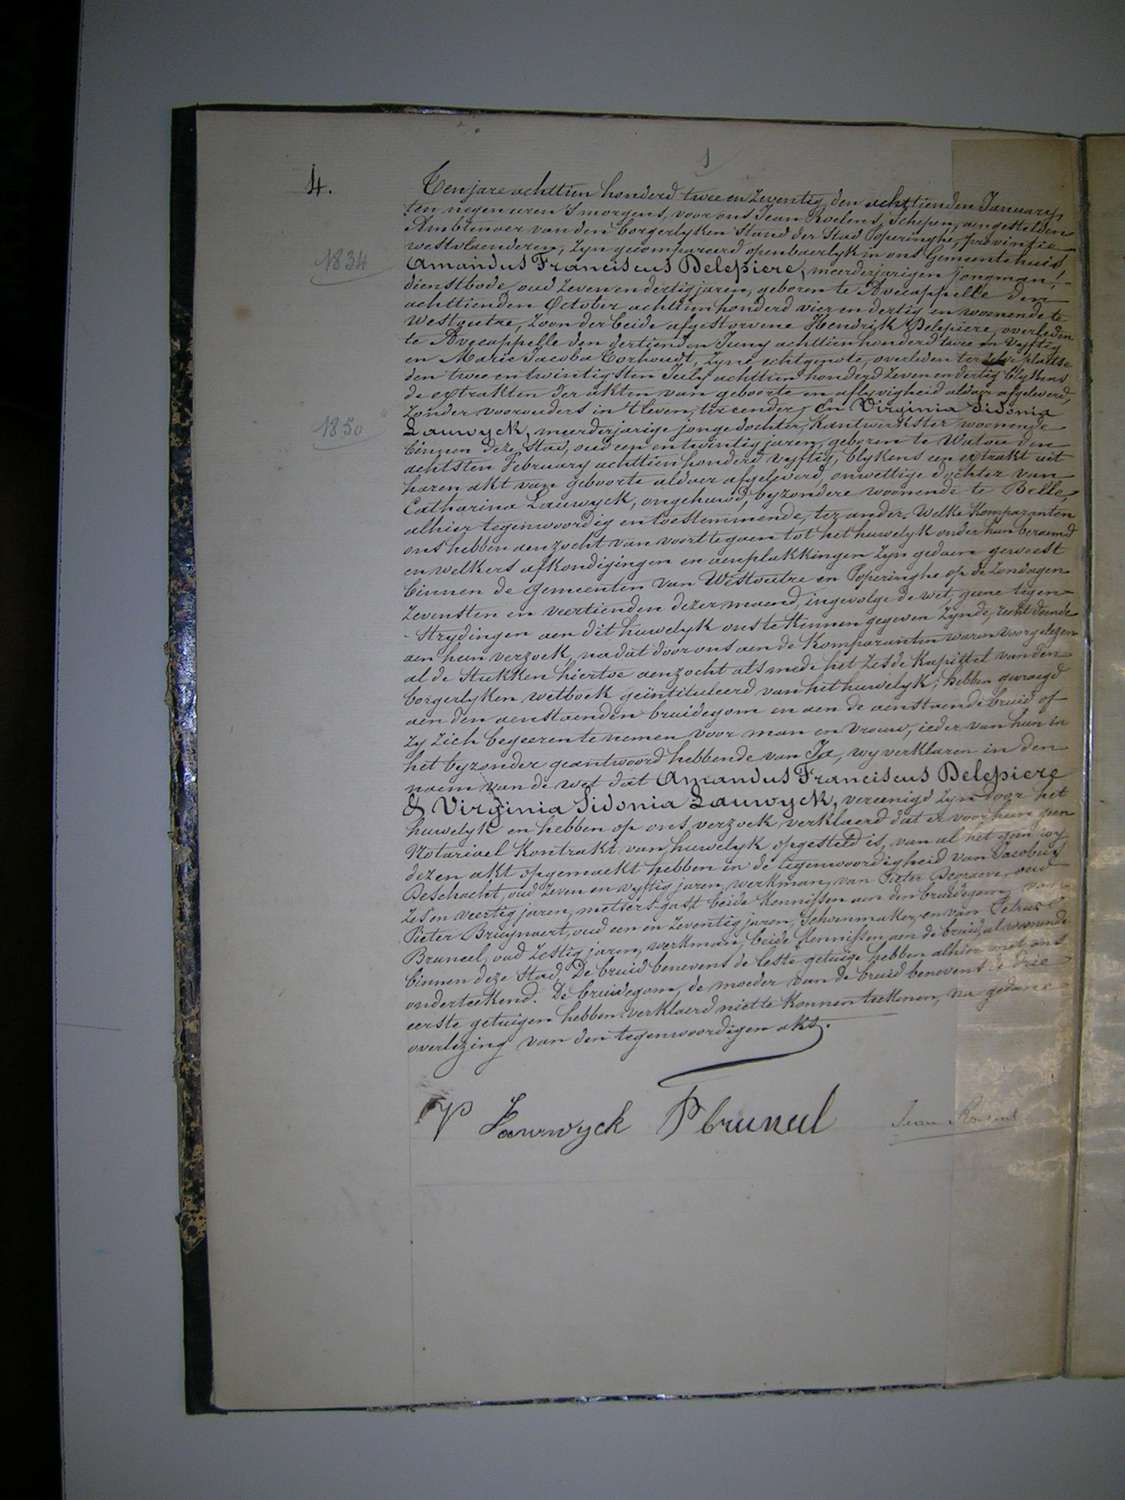 1
4.
Ten jare achttien honderd twee en zeventig, den achttienden January,
ten negen uren 's morgens, voor ons Jean Roelens, Schepen, aengestelden
Ambtenaer van den borgerlyken Stand der Stad Poperinghe, provintie
westvlaenderen, zyn gecompareerd openbaerlyk in ons Gemeentehuis,
1834
Amandus Franciscus Delepiere, meerderjarigen jongman,
dienstbode, oud zeven en dertig jaren, geboren te Avecappelle den
achttienden October achttien honderd vier en dertig en woonende te
Westoutre, zoon der beide afgestorvene Hendrik Delepiere, overleden
te Avecappelle den dertienden Juny achttien honderd twee en vyftig
en Marie Jacoba Torhoudt, zyne echtgenote, overleden ter zelve plaetse
den twee en twintigsten July achttien honderd zeven en dertig blykens
de extrakten der akten van geboorte en aflyvigheid aldaer afgeleverd,
zonder voorouders in 't leven, ter eender; En Virginia Sidonia
1850
Lauwyck, meerderjarige jonge dochter, Kantwerkster woonende
binnen deze Stad, oud een en twintig jaren, geboren te Watou den
achtsten February achttien honderd vyftig, blykens een extrakt uit
haren akt van geboorte aldaer afgeleverd, onwettige dochter van
Catharina Lauwyck, ongehuwd, byzondere woonende te Belle,
alhier tegenwoordig en toestemmende, ter ander. Welke Komparanten
ons hebben aenzocht van voort te gaen tot het huwelyk onder hun beraemd
en welkers afkondigingen en aenplakkingen zyn gedaen geweest
binnen de Gemeenten van Westoutre en Poperinghe op de zondagen
zevensten en veertienden dezer maend, ingevolge de wet, geene tegen-
-strydingen aen dit huwelyk ons te kennen gegeven zynde, recht doende
aen hun verzoek, na dat door ons aen de Komparanten waren voorgelezen
al de Stukken hiertoe aenzocht als mede het zesde Kapittel van den
borgerlyken wetboek geïntituleerd van het huwelyk; hebben gevraegd
aen den aenstaenden bruidegom en aen de aenstaende bruid of
zy zich begeeren te nemen voor man en vrouw, ieder van hun in
het byzonder geantwoord hebbende van Ja, wy verklaren in den
naem van de wet dat Amandus Franciscus Delepiere
& Virginia Sidonia Lauwyck, vereenigd zyn door het
huwelyk en hebben op ons verzoek verklaerd dat er voor hun geen
Notariael Kontrakt van huwelyk opgesteld is, van al het geen wy
dezen akt opgemaekt hebben in de tegenwoordigheid van Jacobus
Beschacht, oud zeven en vyftig jaren, werkman, van Pieter Degraeve, oud
zes en veertig jaren, metsers-gast beide Kennissen aen den bruidegom, van
Pieter Bruynaert, oud een en zeventig jaren, schoenmaker, en van Petrus
Bruneel, oud zestig jaren, werkman, beide Kennissen aen de bruid, al woonende
binnen deze Stad. De bruid benevens de leste getuige hebben alhier met ons
onderteekend. De bruidegom, de moeder van de bruid benevens de drie
eerste getuigen hebben verklaerd niet te konnen teekenen, na gedane
overlezing van den tegenwoordigen akt.
V Lauwyck P bruneel Jean Roelens